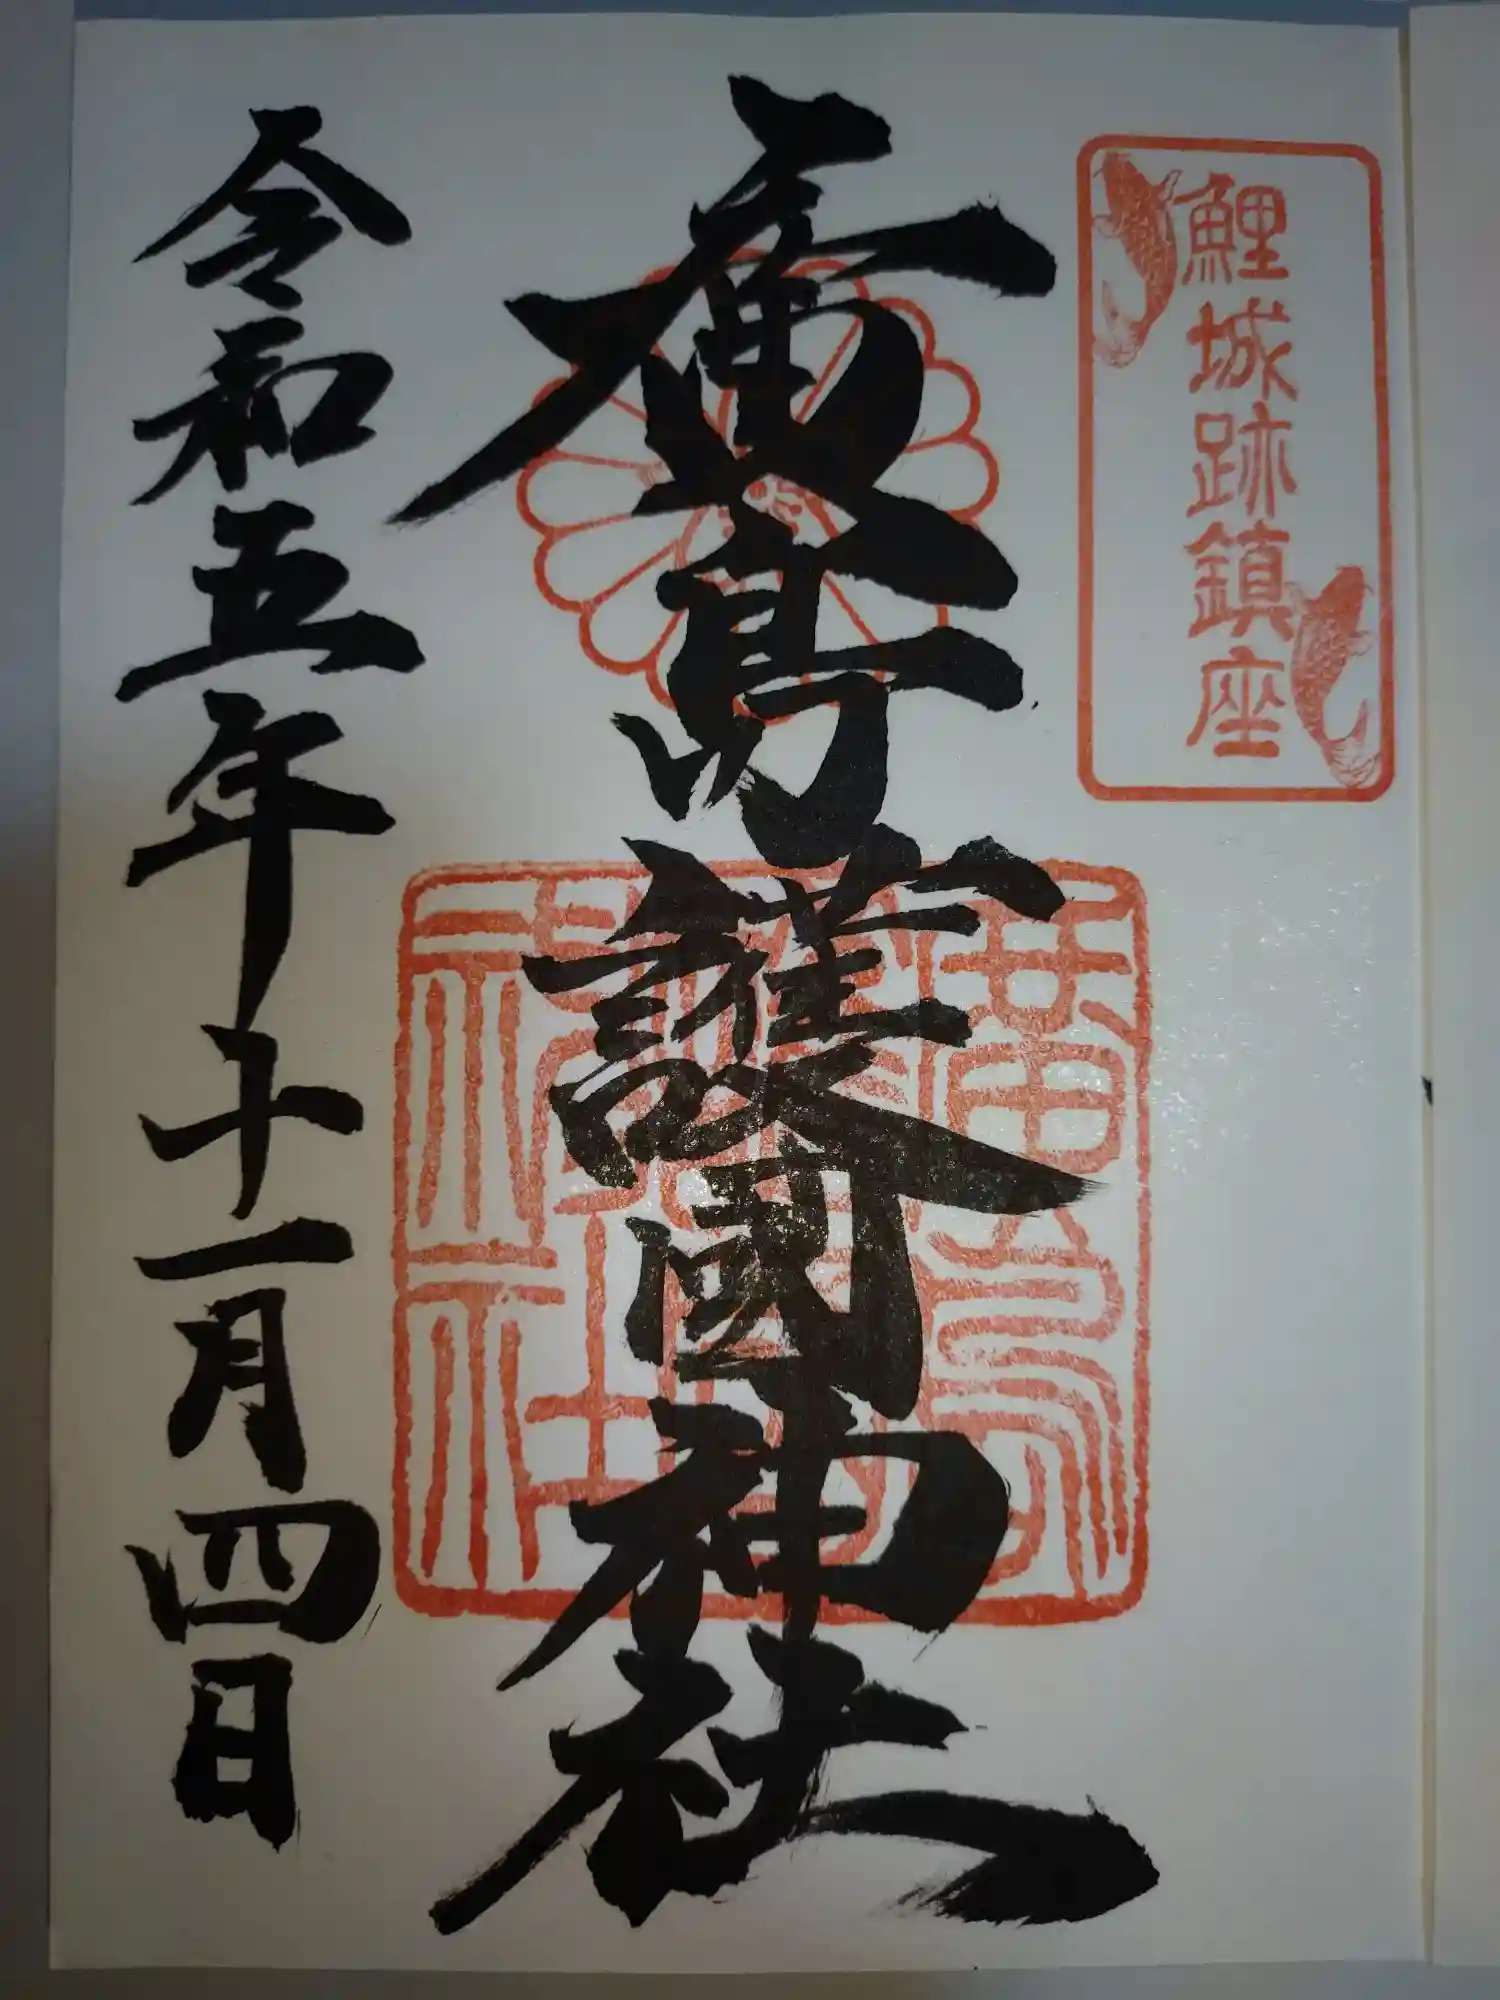 鯉城跡鎮座
廣島護國神社
令和五年十一月四日